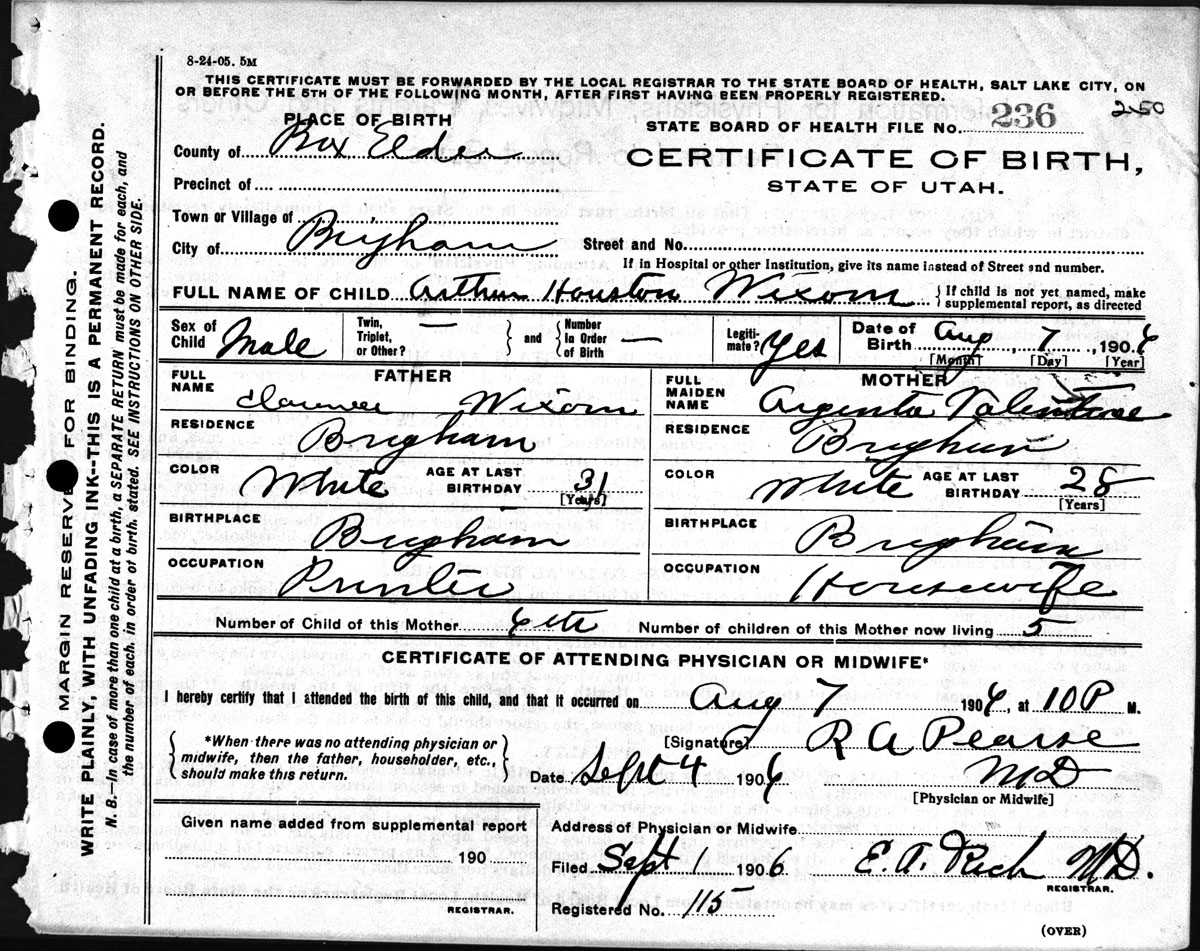 8-24-05. 5M
THIS CERTIFICATE MUST BE FORWARDED BY THE LOCAL REGISTRAR TO THE STATE BOARD OF HEALTH, SALT LAKE CITY, ON
OR BEFORE THE 5TH OF THE FOLLOWING MONTH, AFTER FIRST HAVING BEEN PROPERLY REGISTERED.
250
PLACE OF BIRTH
STATE BOARD OF HEALTH FILE No. 236
County of Box Elder
CERTIFICATE OF BIRTH,
STATE OF UTAH.
Precinct of
Town or Village of
City of Brigham
Street and No.
If in Hospital or other Institution, give its name instead of Street and number.
FULL NAME OF CHILD Arthur Houston Wixom { If child is not yet named, make supplemental report, as directed
Sex of Child Male
Twin, Triplet, or Other? — } and { Number In Order of Birth —
Legitimate? Yes
Date of Birth Aug, 7, 1906
[Month] [Day] [Year]
FATHER
MOTHER
FULL NAME Wixom
FULL MAIDEN NAME Argenta Valentine
RESIDENCE Brigham
RESIDENCE Brigham
COLOR White AGE AT LAST BIRTHDAY 31 [Years]
COLOR White AGE AT LAST BIRTHDAY 28 [Years]
BIRTHPLACE Brigham
BIRTHPLACE Brigham
OCCUPATION Printer
OCCUPATION Housewife
Number of Child of this Mother 6th
Number of children of this Mother now living 5
CERTIFICATE OF ATTENDING PHYSICIAN OR MIDWIFE*
I hereby certify that I attended the birth of this child, and that it occurred on Aug 7 1906, at 10 P M.
{ *When there was no attending physician or midwife, then the father, householder, etc., should make this return. }
[Signature] R A Pearse
MD
Date Sept 4 1906
[Physician or Midwife]
Given name added from supplemental report
190
REGISTRAR.
Address of Physician or Midwife
Filed Sept 1 1906 E. A. Rich M.D.
REGISTRAR.
Registered No. 115
(OVER)
MARGIN RESERVED FOR BINDING.
WRITE PLAINLY, WITH UNFADING INK--THIS IS A PERMANENT RECORD.
N. B.—In case of more than one child at a birth, a SEPARATE RETURN must be made for each, and
the number of each, in order of birth, stated. SEE INSTRUCTIONS ON OTHER SIDE.